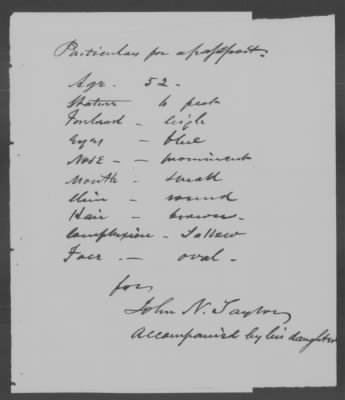 Particulars for a passport.
Age. 52.
Stature 6 feet
Forehead - high
Eyes - blue
Nose - - prominent
Mouth - small
Chin - round
Hair - brown
Complexion - Sallow
Face - oval -
for
John N. Taylor
Accompanied by his daughter